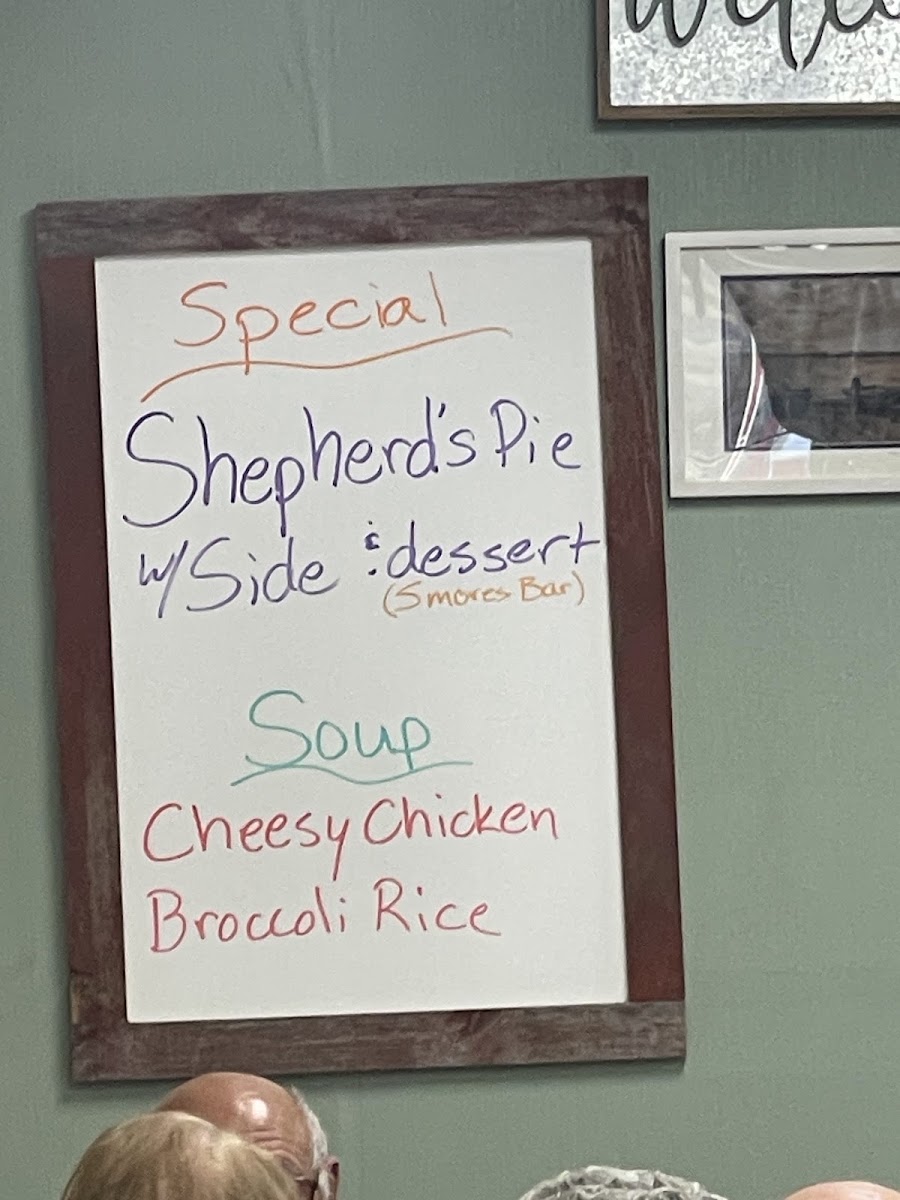 Special
Shepherd's Pie
w/ Side & dessert
(Smores Bar)
Soup
Cheesy Chicken
Broccoli Rice